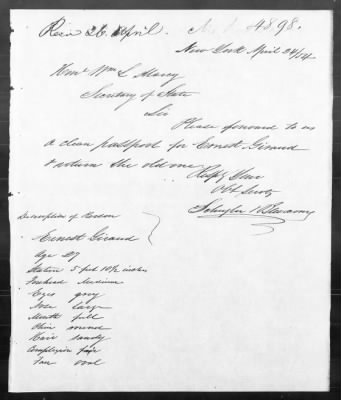 Recd 26 April. 4898.
New York April 24/54
Honl Wm L. Marcy
Secretary of State
Sir
Please forward to us
a clean passport for Ernest Giraud
& return the old one.
Respy Your
Obt Servts
Description of Person
Ernest Giraud
Age 27
Stature 5 feet 10 1/2 inches
Forehead Medium
Eyes grey
Nose large
Mouth full
Chin round
Hair sandy
Complexion fair
Face oval